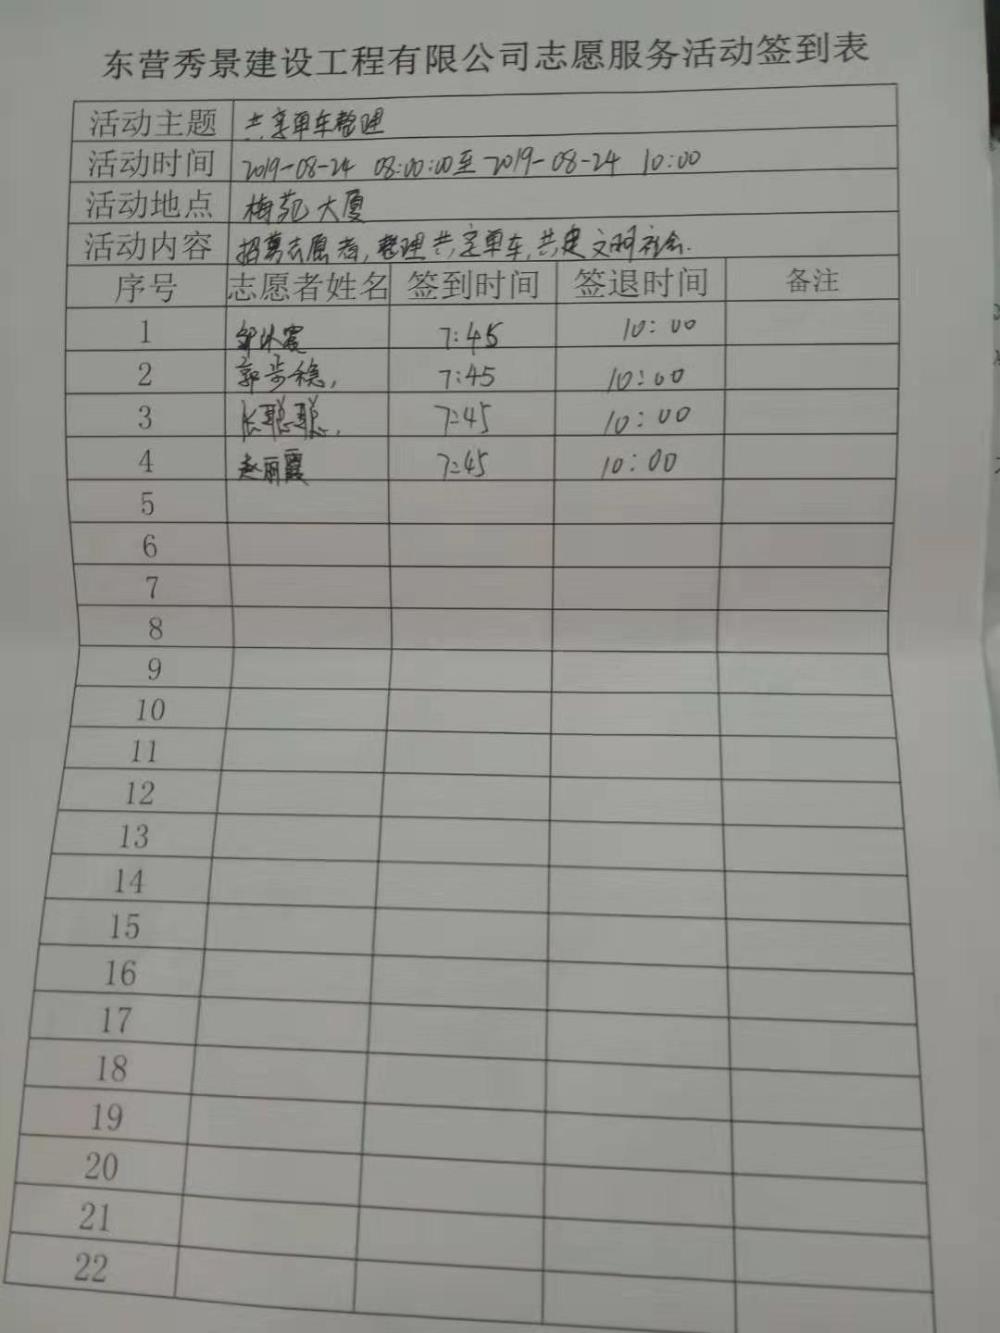 东营秀景建设工程有限公司志愿服务活动签到表
活动主题 共享单车整理
活动时间 2019-08-24 08:00:00至2019-08-24 10:00
活动地点 梅苑大厦
活动内容 招募志愿者,整理共享单车,共建文明社会.
序号 志愿者姓名 签到时间 签退时间 备注
1 7:45 10:00
2 郭步稳, 7:45 10:00
3 张聪聪, 7:45 10:00
4 赵丽霞 7:45 10:00
5
6
7
8
9
10
11
12
13
14
15
16
17
18
19
20
21
22